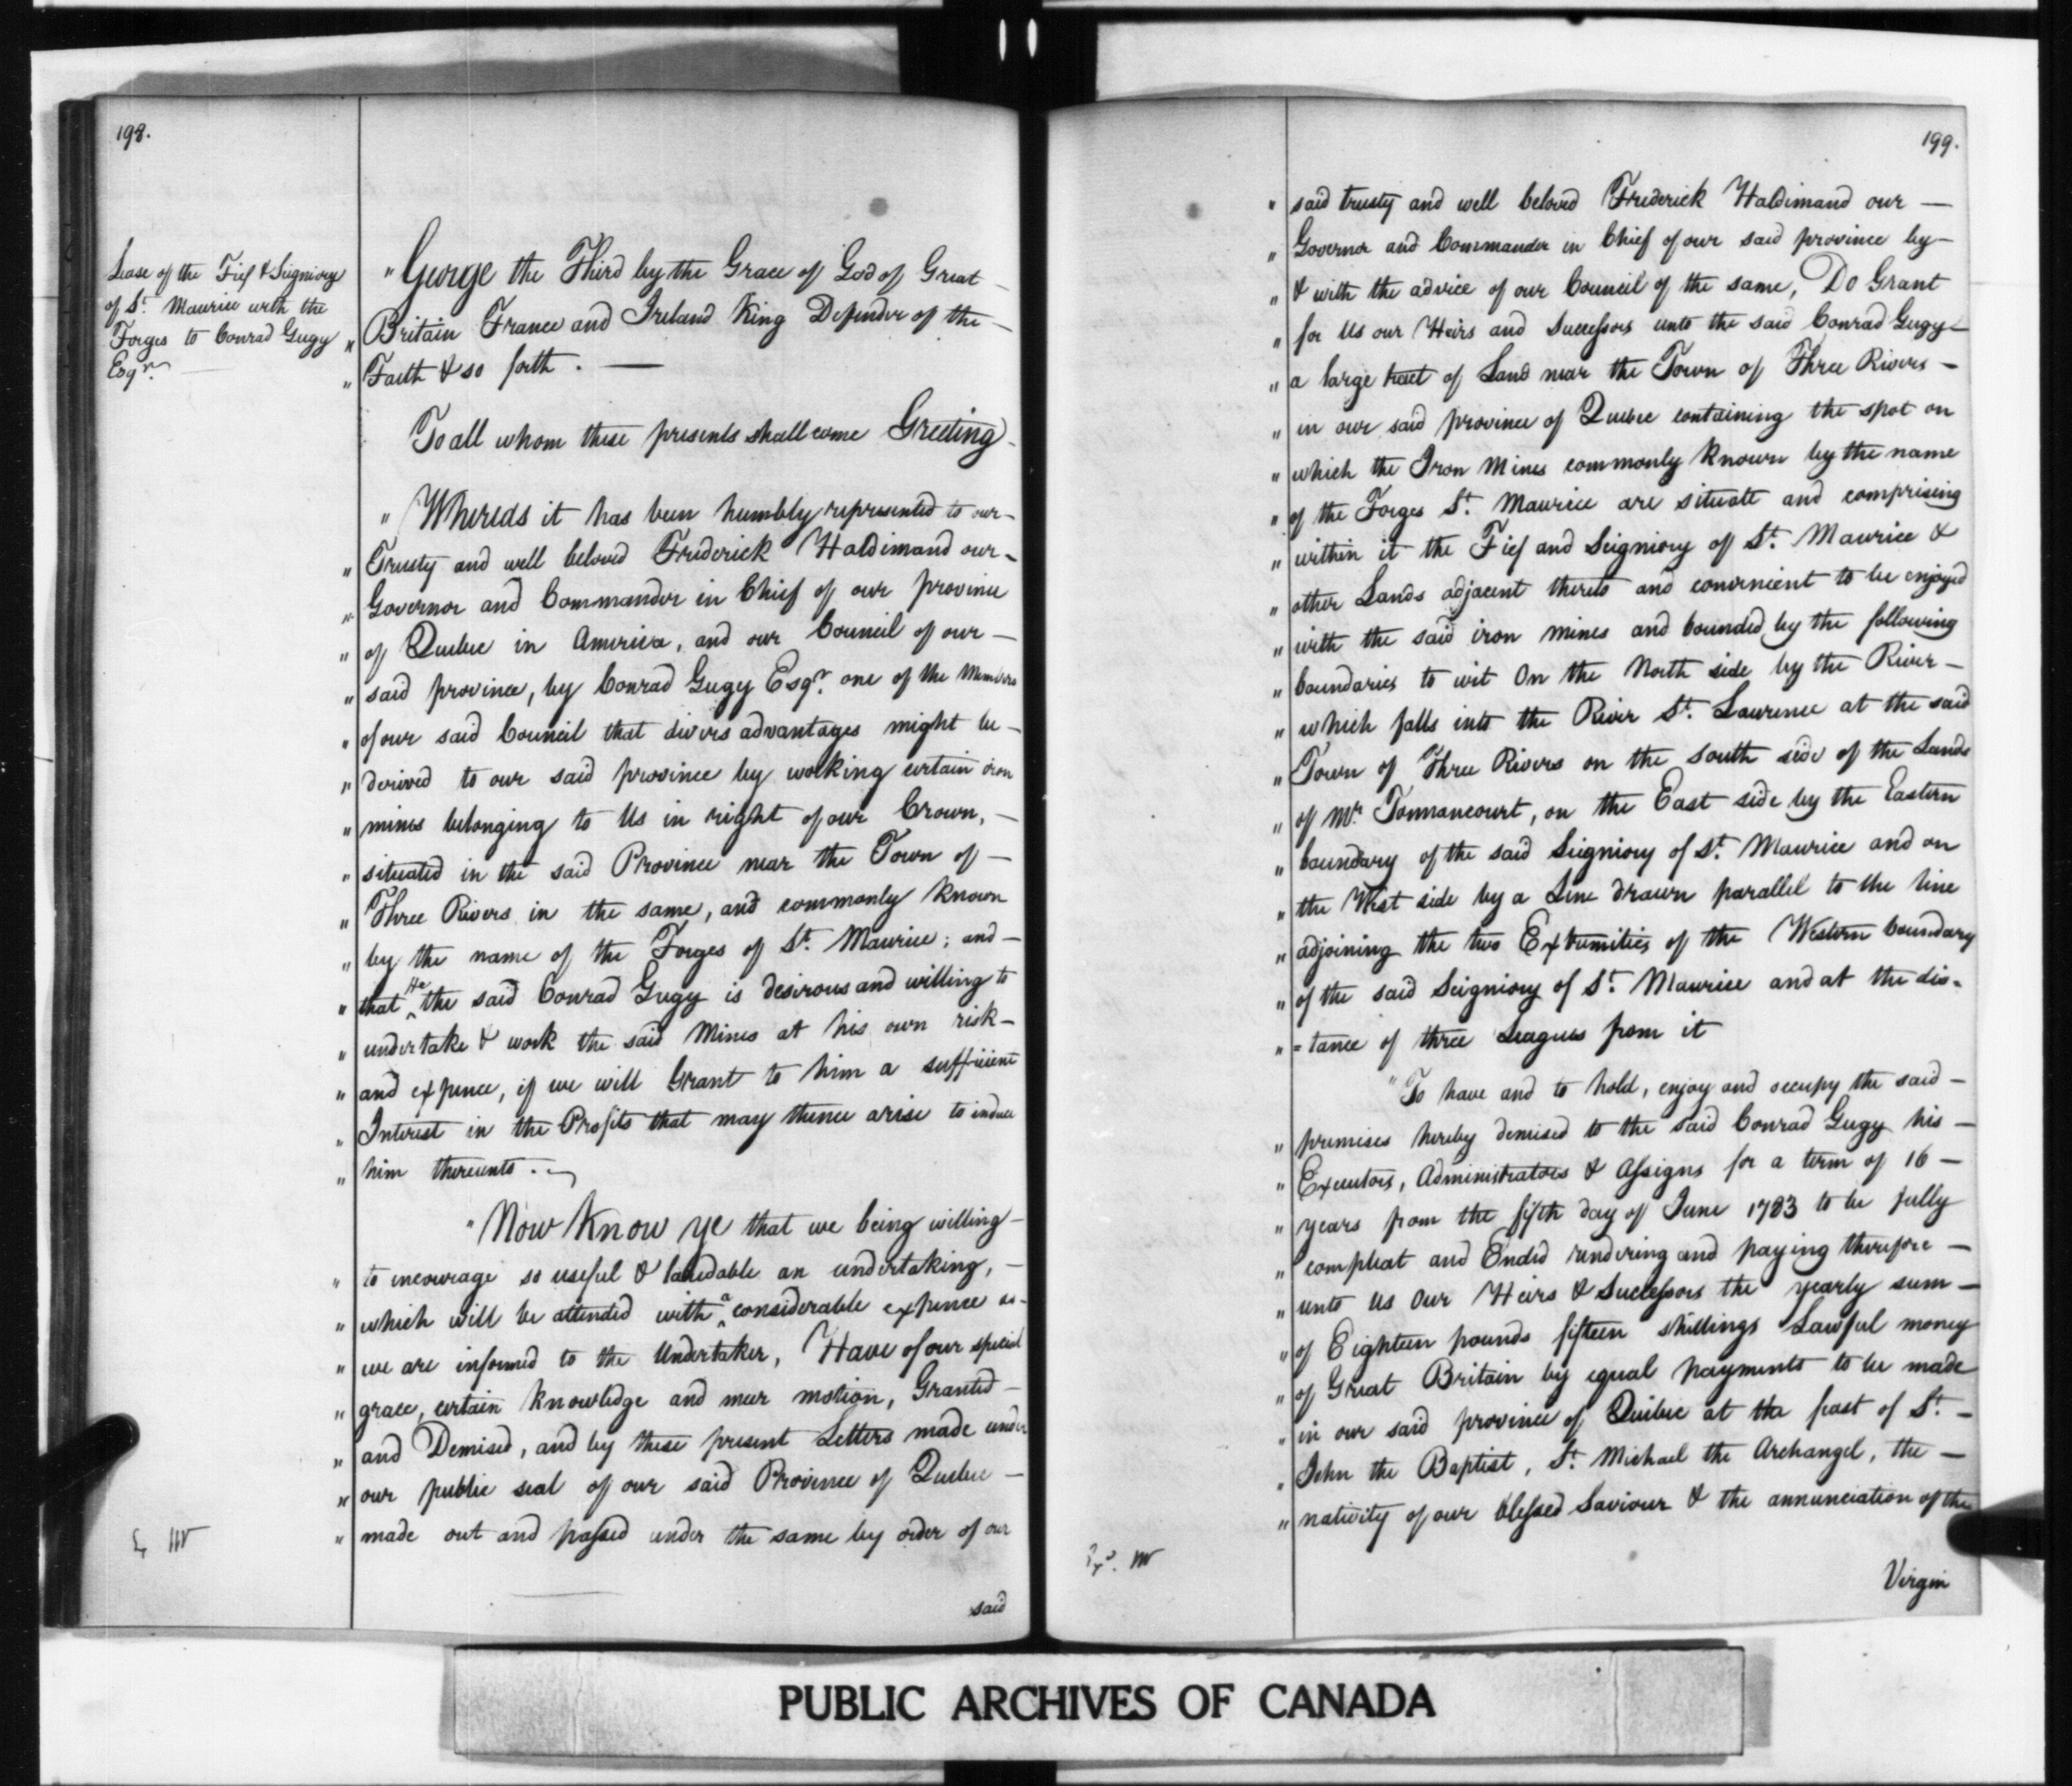 198.
Lease of the Fief & Seigniory
of St. Maurice with the
Forges to Conrad Gugy
Esqr.
"George the Third by the Grace of God of Great
" Britain France and Ireland King Defender of the
" Faith & so forth.
To all whom these presents shall come Greeting
" Whereas it has been humbly represented to our
" Trusty and well beloved Frederick Haldimand our
" Governor and Commander in Chief of our province
" of Quebec in America, and our Council of our
" said province, by Conrad Gugy Esqr. one of the Members
" of our said Council that divers advantages might be
" derived to our said province by working certain iron
" mines belonging to Us in right of our Crown,
" situated in the said Province near the Town of
" Three Rivers in the same, and commonly known
" by the name of the Forges of St. Maurice; and
" that He the said Conrad Gugy is desirous and willing to
" undertake & work the said Mines at his own risk
" and expence, if we will Grant to him a sufficient
" Interest in the Profits that may thence arise to induce
" him thereunto.
" Now Know ye that we being willing
" to incourage so useful & laudable an undertaking,
" which will be attended with a considerable expence as
" we are informed to the Undertaker, Have of our special
" grace, certain knowledge and meer motion, Granted
" and Demised, and by these present Letters made under
" our public seal of our said Province of Quebec
" made out and passed under the same by order of our
said
199.
" said trusty and well beloved Frederick Haldimand our
" Governor and Commander in Chief of our said province by
" & with the advice of our Council of the same, Do Grant
" for Us our Heirs and Successors unto the said Conrad Gugy
" a large tract of Land near the Town of Three Rivers
" in our said province of Quebec containing the spot on
" which the Iron Mines commonly known by the name
" of the Forges St. Maurice are situate and comprising
" within it the Fief and Seigniory of St. Maurice &
" other Lands adjacent thereto and convenient to be enjoyed
" with the said iron mines and bounded by the following
" boundaries to wit On the North side by the River
" which falls into the River St. Lawrence at the said
" Town of Three Rivers on the south side of the Lands
" of Mr. Tonnancourt, on the East side by the Eastern
" boundary of the said Seigniory of St. Maurice and on
" the West side by a Line drawn parallel to the line
" adjoining the two Extremities of the Western boundary
" of the said Seigniory of St. Maurice and at the dis=
" =tance of three Leagues from it
" To have and to hold, enjoy and occupy the said
" premises hereby demised to the said Conrad Gugy his
" Executors, Administrators & Assigns for a term of 16
" years from the fifth day of June 1783 to be fully
" compleat and Ended rendering and paying therefore
" unto Us Our Heirs & Successors the yearly sum
" of Eighteen pounds fifteen shillings Lawful money
" of Great Britain by equal payments to be made
" in our said province of Quebec at the feast of St.
" John the Baptist, St. Michael the Archangel, the
" nativity of our blessed Saviour & the annunciation of the
Virgin
PUBLIC ARCHIVES OF CANADA